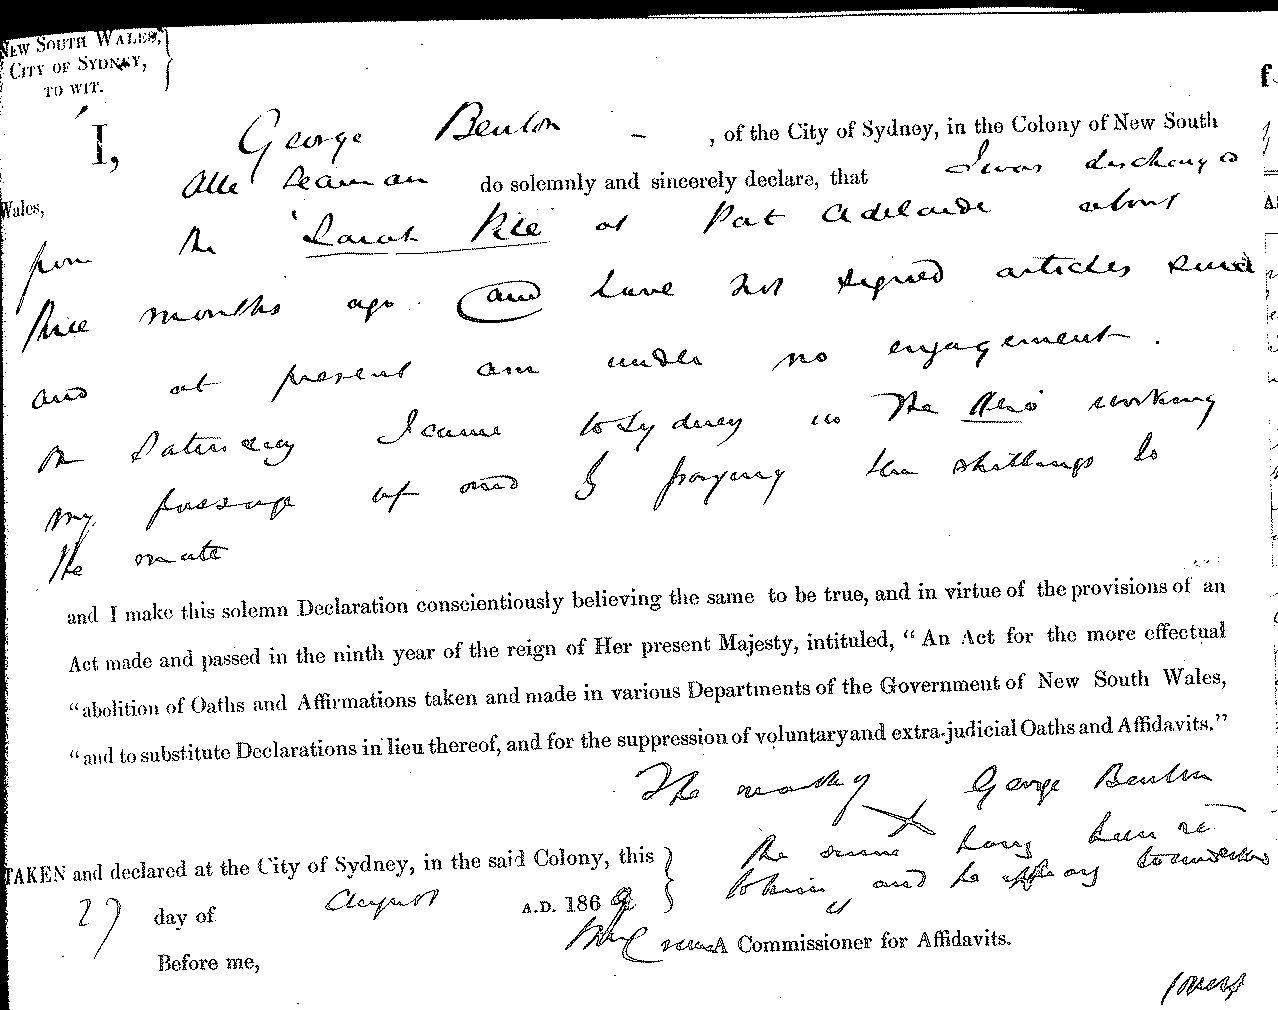 NEW SOUTH WALES,
CITY OF SYDNEY,
TO WIT.
I, George Benton - , of the City of Sydney, in the Colony of New South
Wales, Able Seaman do solemnly and sincerely declare, that I was discharged
from the Sarah at Port Adelaide about
three months ago and have not signed articles since
and at present am under no engagement.
On Saturday I came to Sydney in The working
my passage up and by paying ten shillings to
the mate
and I make this solemn Declaration conscientiously believing the same to be true, and in virtue of the provisions of an
Act made and passed in the ninth year of the reign of Her present Majesty, intituled, "An Act for the more effectual
"abolition of Oaths and Affirmations taken and made in various Departments of the Government of New South Wales,
"and to substitute Declarations in lieu thereof, and for the suppression of voluntary and extra-judicial Oaths and Affidavits."
The mark of X George Benton
the same having been read
TAKEN and declared at the City of Sydney, in the said Colony, this to him and he appearing to understand
27 day of August A.D. 1869 it
Before me, A Commissioner for Affidavits.